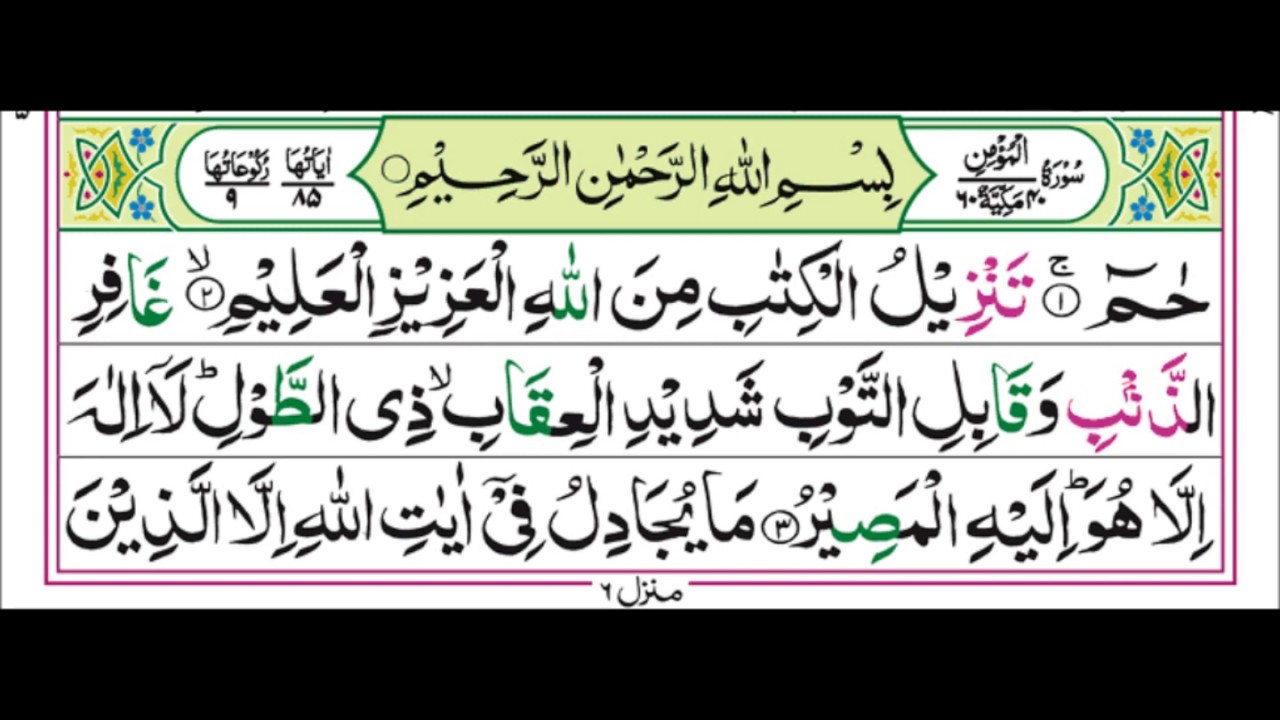 سُوْرَةُ الْمُؤْمِنِ ۴۰ مَكِّيَّةٌ ۶۰
بِسْمِ اللّٰهِ الرَّحْمٰنِ الرَّحِيْمِ ○
اٰيَاتُهَا ۸۵ رُكُوْعَاتُهَا ۹
حٰمٓ ۚ‏﴿۱﴾ تَنْزِيْلُ الْكِتٰبِ مِنَ اللّٰهِ الْعَزِيْزِ الْعَلِيْمِ ۙ‏﴿۲﴾ غَافِرِ
الذَّنْۢبِ وَقَابِلِ التَّوْبِ شَدِيْدِ الْعِقَابِ ۙ ذِى الطَّوْلِ ؕ لَاۤ اِلٰهَ
اِلَّا هُوَ ؕ اِلَيْهِ الْمَصِيْرُ ﴿۳﴾ مَا يُجَادِلُ فِىْۤ اٰيٰتِ اللّٰهِ اِلَّا الَّذِيْنَ
منزل ۶